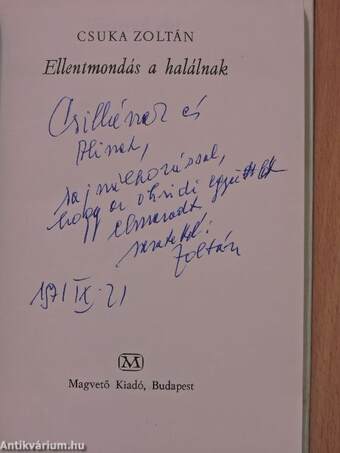 CSUKA ZOLTÁN
Ellentmondás a halálnak
Csillának és
sajnálkozással,
hogy az ohridi együttlét
elmaradt
szeretettel:
Zoltán
1971 IX. 21
M
Magvető Kiadó, Budapest
Antikvárium.hu